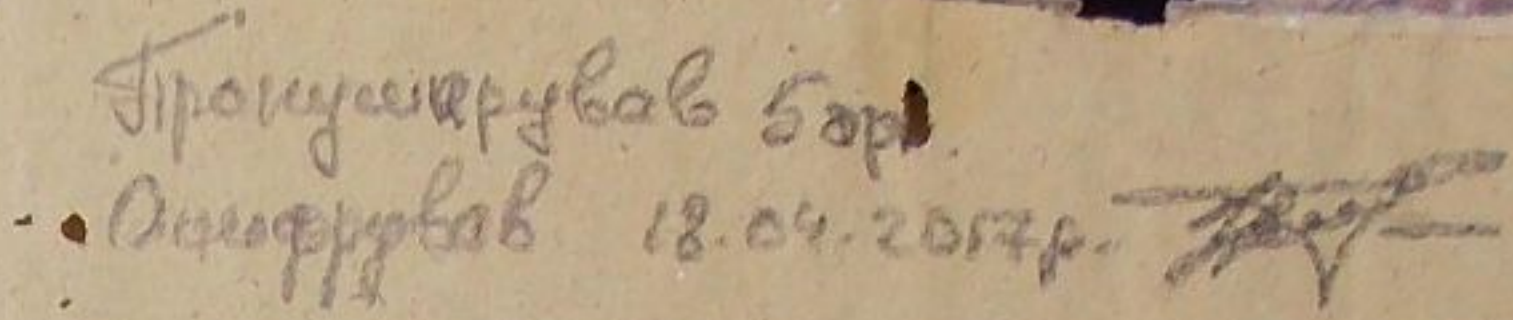 Пронумерував 5 арк.
Оцифрував 18.04.2017р.